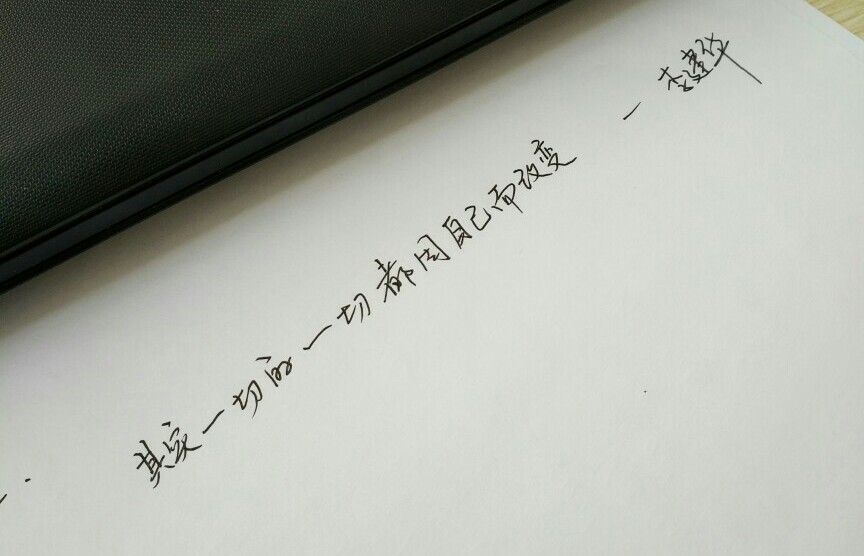 其实一切的一切都因自己而改变 — 李建华